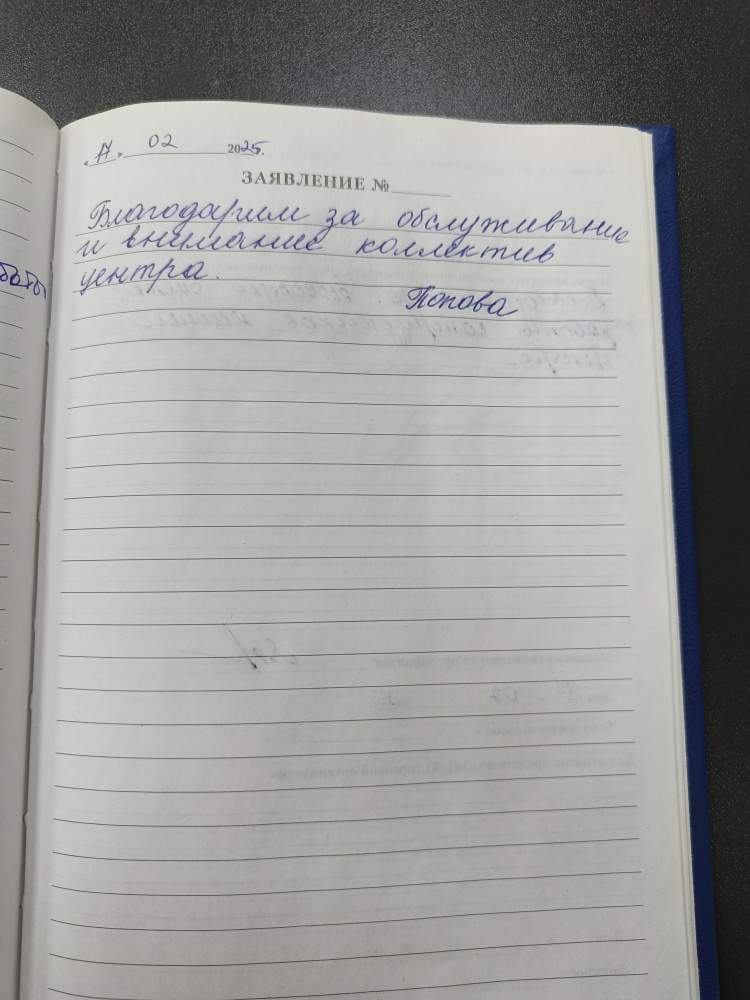 «17» 02 2025.
ЗАЯВЛЕНИЕ №
Благодарим за обслуживание
и внимание коллектив
центра.
Попова